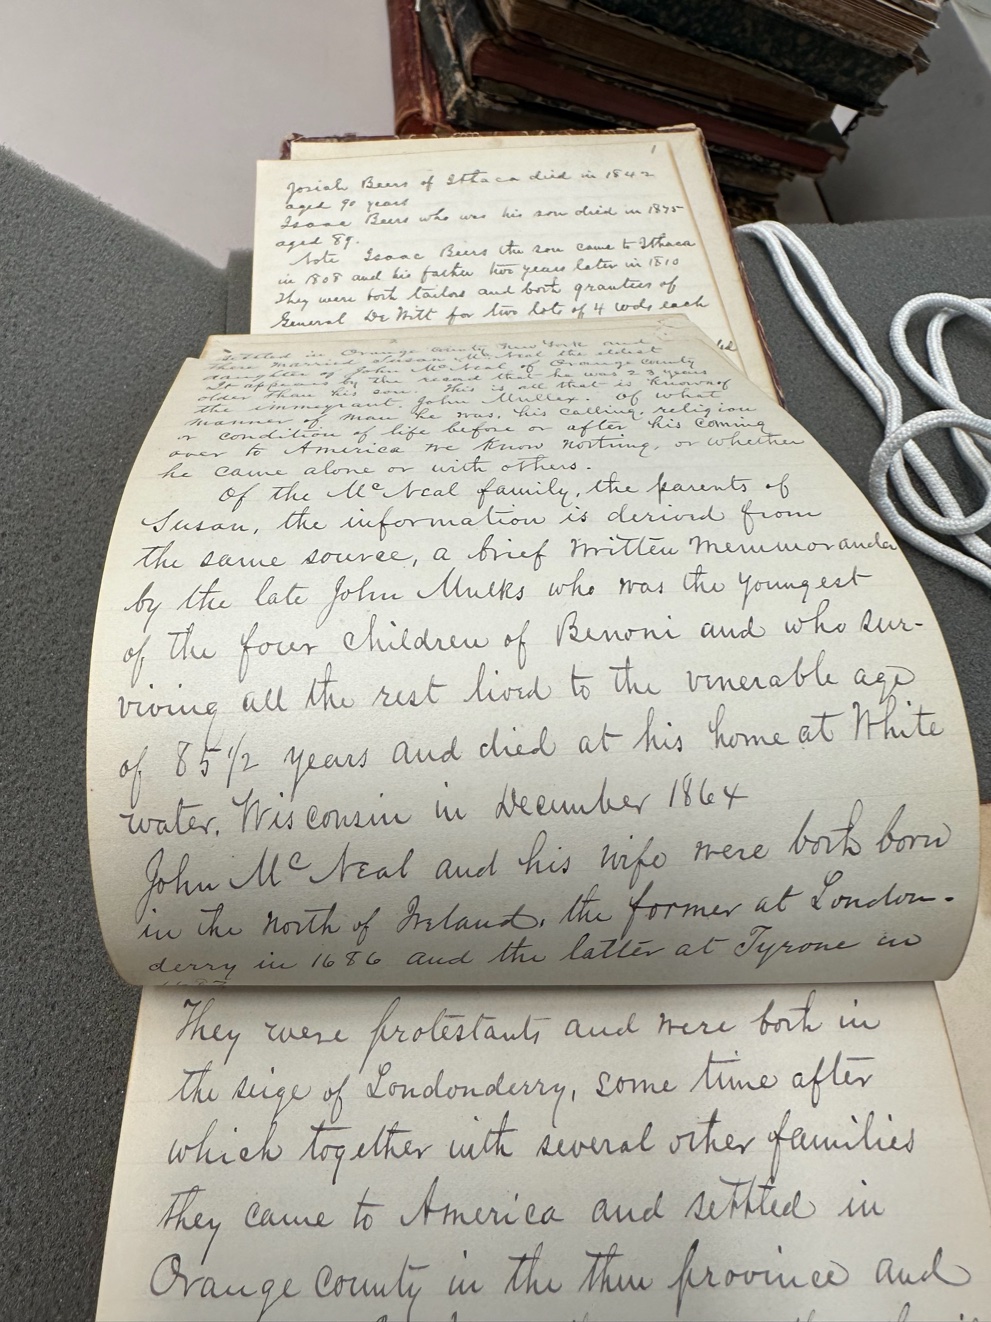 1
Josiah Beers of Ithaca died in 1842
aged 90 years
Isaac Beers who was his son died in 1875
aged 89.
Note Isaac Beers the son came to Ithaca
in 1808 and his father two years later in 1810
They were both tailors and both grantees of
General De Witt for two lots of 4 rods each
2
settled in Orange county New York and
there married Susan McNeal the eldest
daughter of John McNeal of Orange county
It appears by the record that he was 23 years
older than his son. This is all that is known of
the immegrant, John Mullex. Of what
manner of man he was, his calling, religion
or condition of life before or after his coming
over to America we know nothing, or whether
he came alone or with others.
Of the McNeal family, the parents of
Susan, the information is derived from
the same source, a brief written memmoranda
by the late John Mulks who was the youngest
of the four children of Benoni and who sur-
viving all the rest lived to the venerable age
of 85 1/2 years and died at his home at White
water, Wisconsin in December 1864
John McNeal and his wife were both born
in the north of Ireland, the former at London-
derry in 1686 and the latter at Tyrone in
They were protestants and were both in
the seige of Londonderry, some time after
which together with several other families
they came to America and settled in
Orange county in the then province and